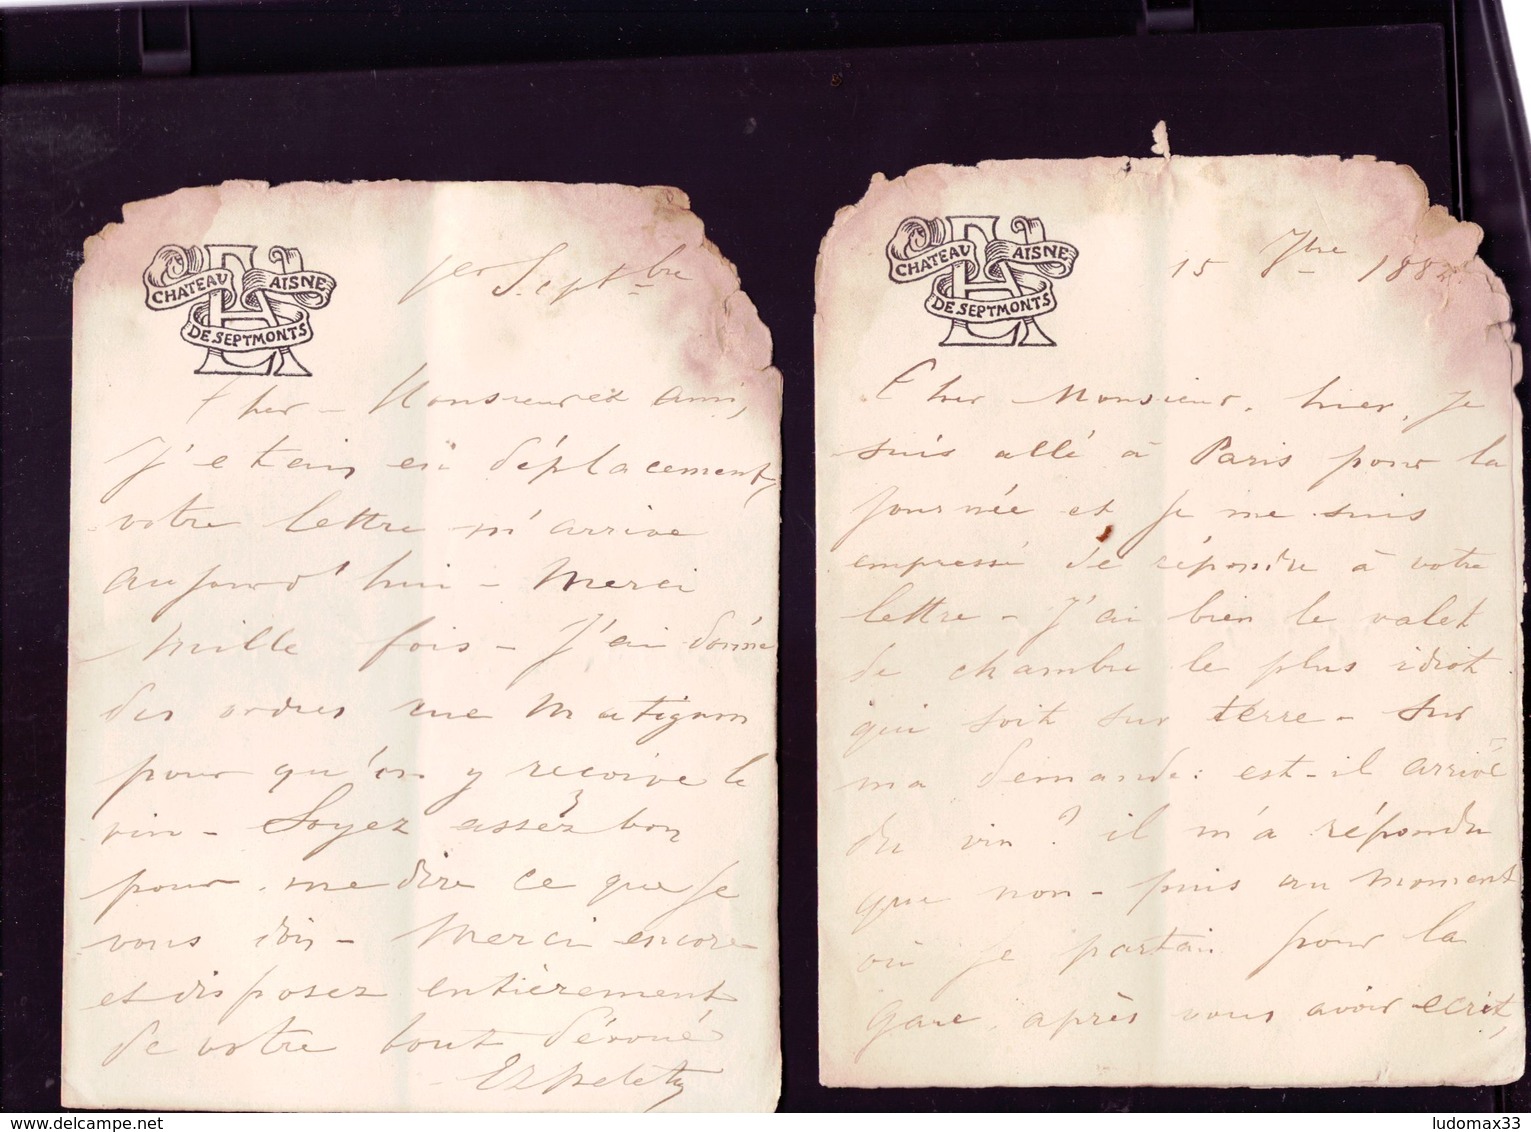 CHATEAU AISNE
DE SEPTMONTS
1er Septbre
Cher Monsieur et ami,
J'etais en déplacement,
votre lettre m'arrive
aujourd'hui - Merci
mille fois - J'ai donné
des ordres rue Matignon
pour qu'on y recoive le
vin - Soyez assez bon
pour me dire ce que je
vous dois - Merci encore
et disposez entièrement
de votre tout dévoué
Ezpeleta
CHATEAU AISNE
DE SEPTMONTS
15 7bre 188
Cher Monsieur, hier, je
suis allé à Paris pour la
journée et je me suis
empressé de répondre à votre
lettre - J'ai bien le valet
de chambre le plus idiot
qui soit sur terre - sur
ma demande: est-il arrivé
du vin? il m'a répondu
que non - puis au moment
où je partais pour la
gare, après vous avoir ecrit,
delcampe.net
ludomax33